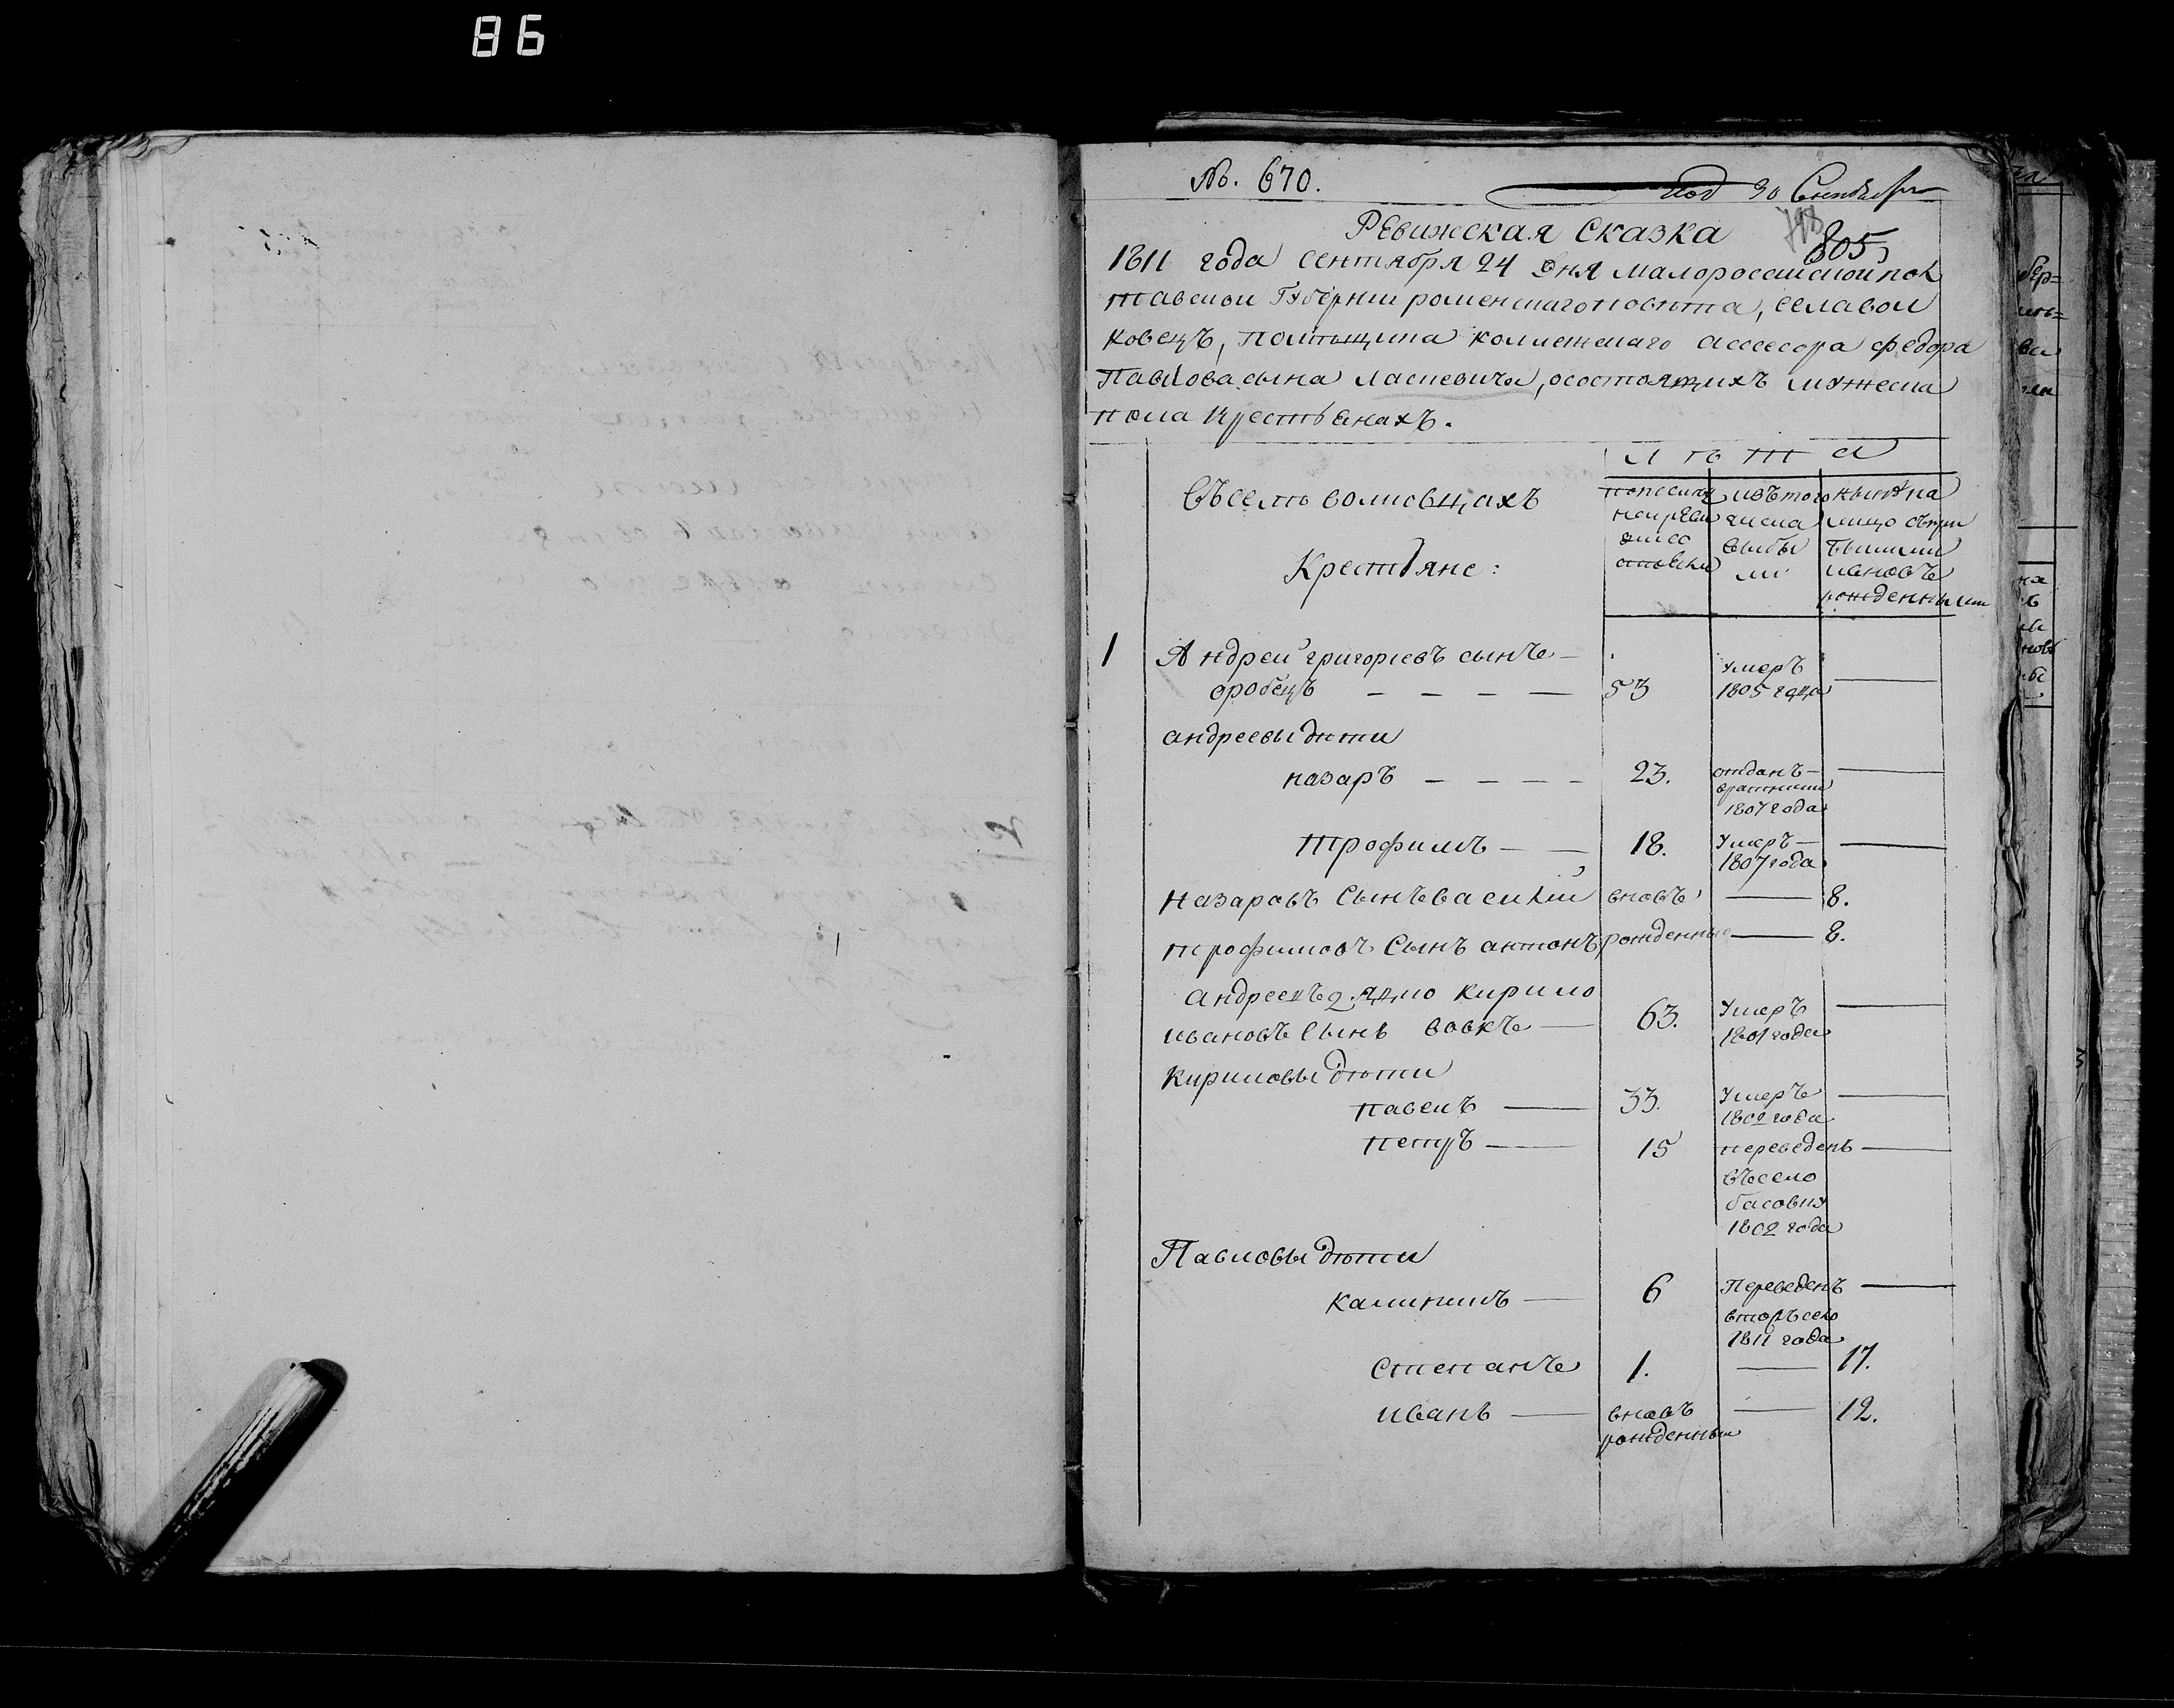 86
№. 670.
под 30 Сентября
Ревижская Сказка
798
805
1811 года сентября 24 дня малоросийской пол
тавской Губернии роменскаго повѣта, села вол
ковецъ, помѣщика колежскаго ассесора федора
Павлова сына ласкевича, осостоящихъ мужеска
пола крестьянахъ.
Л ѣ т а
Въ селѣ волковцахъ
Крестьяне:
попослѣд
ней реви
зии со
стояли
изътого
числа
выбы
ли
нынѣ на
лицо съпри
былыми
ивновъ
рожденными
1
Андрей григоріевъ сынъ —
53
Умеръ
1805 года
андреевы дѣти
назаръ — — — —
23.
отданъ —
1807 года
трофимъ — —
18.
Умеръ —
1807 года
назаровъ Сынъ василий
вновъ
8.
трофимовъ Сынъ антонъ
рожденные
8.
андреевъ дядко кирило
ивановъ Сынъ вовкъ —
63.
Умеръ
1801 года
Кириловы дѣти
павелъ —
33.
Умеръ
1802 года
петръ —
15
переведенъ
въ село
басовку
1802 года
Павловы дѣти
калиникъ —
6
Переведенъ
1811 года
степанъ
1.
17.
иванъ —
вновъ
рожденный
12.